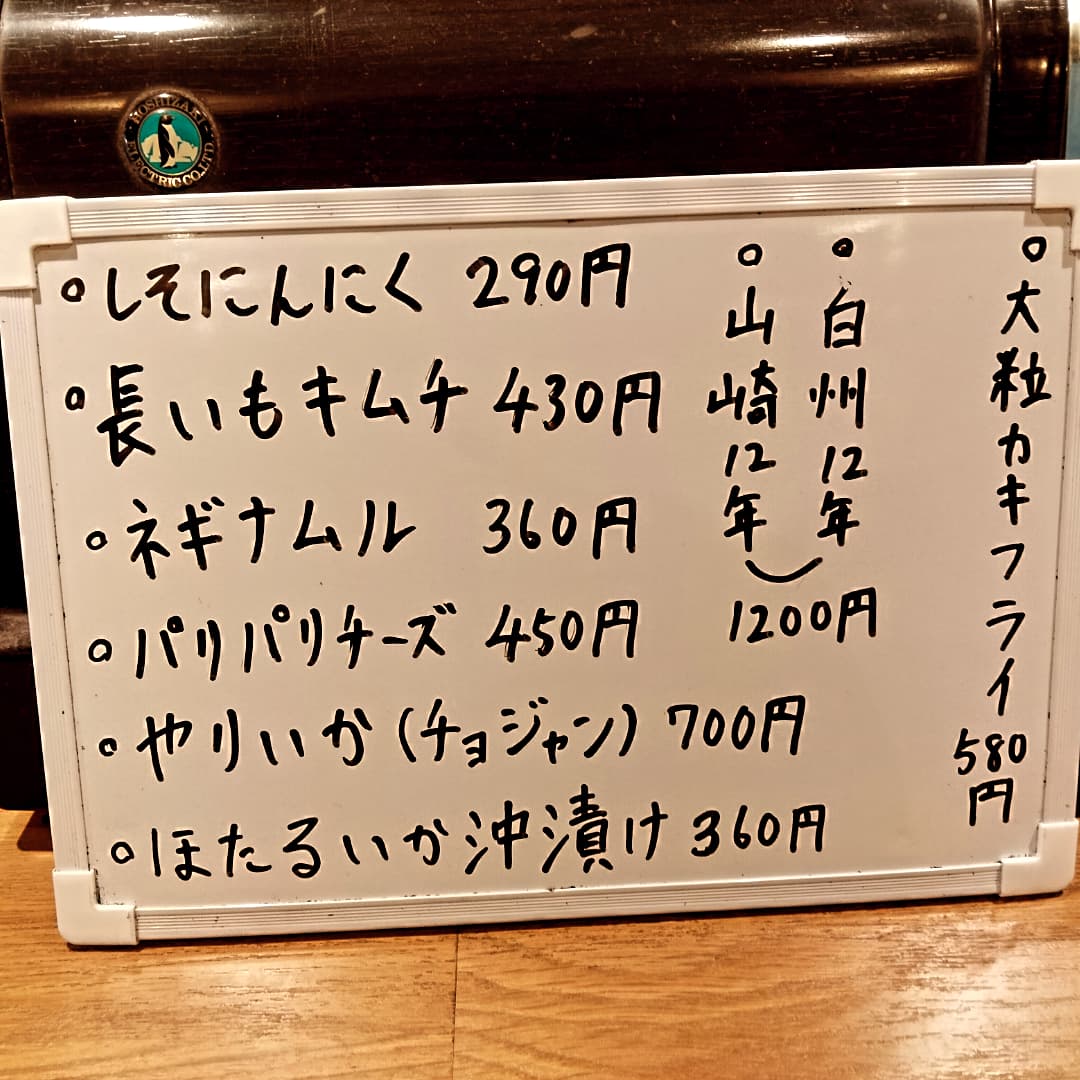 HOSHIZAKI ELECTRIC CO.,LTD.
しそにんにく 290円
長いもキムチ 430円
ネギナムル 360円
パリパリチーズ 450円
やりいか(チョジャン) 700円
ほたるいか沖漬け 360円
大粒カキフライ 580円
白州12年
山崎12年
1200円